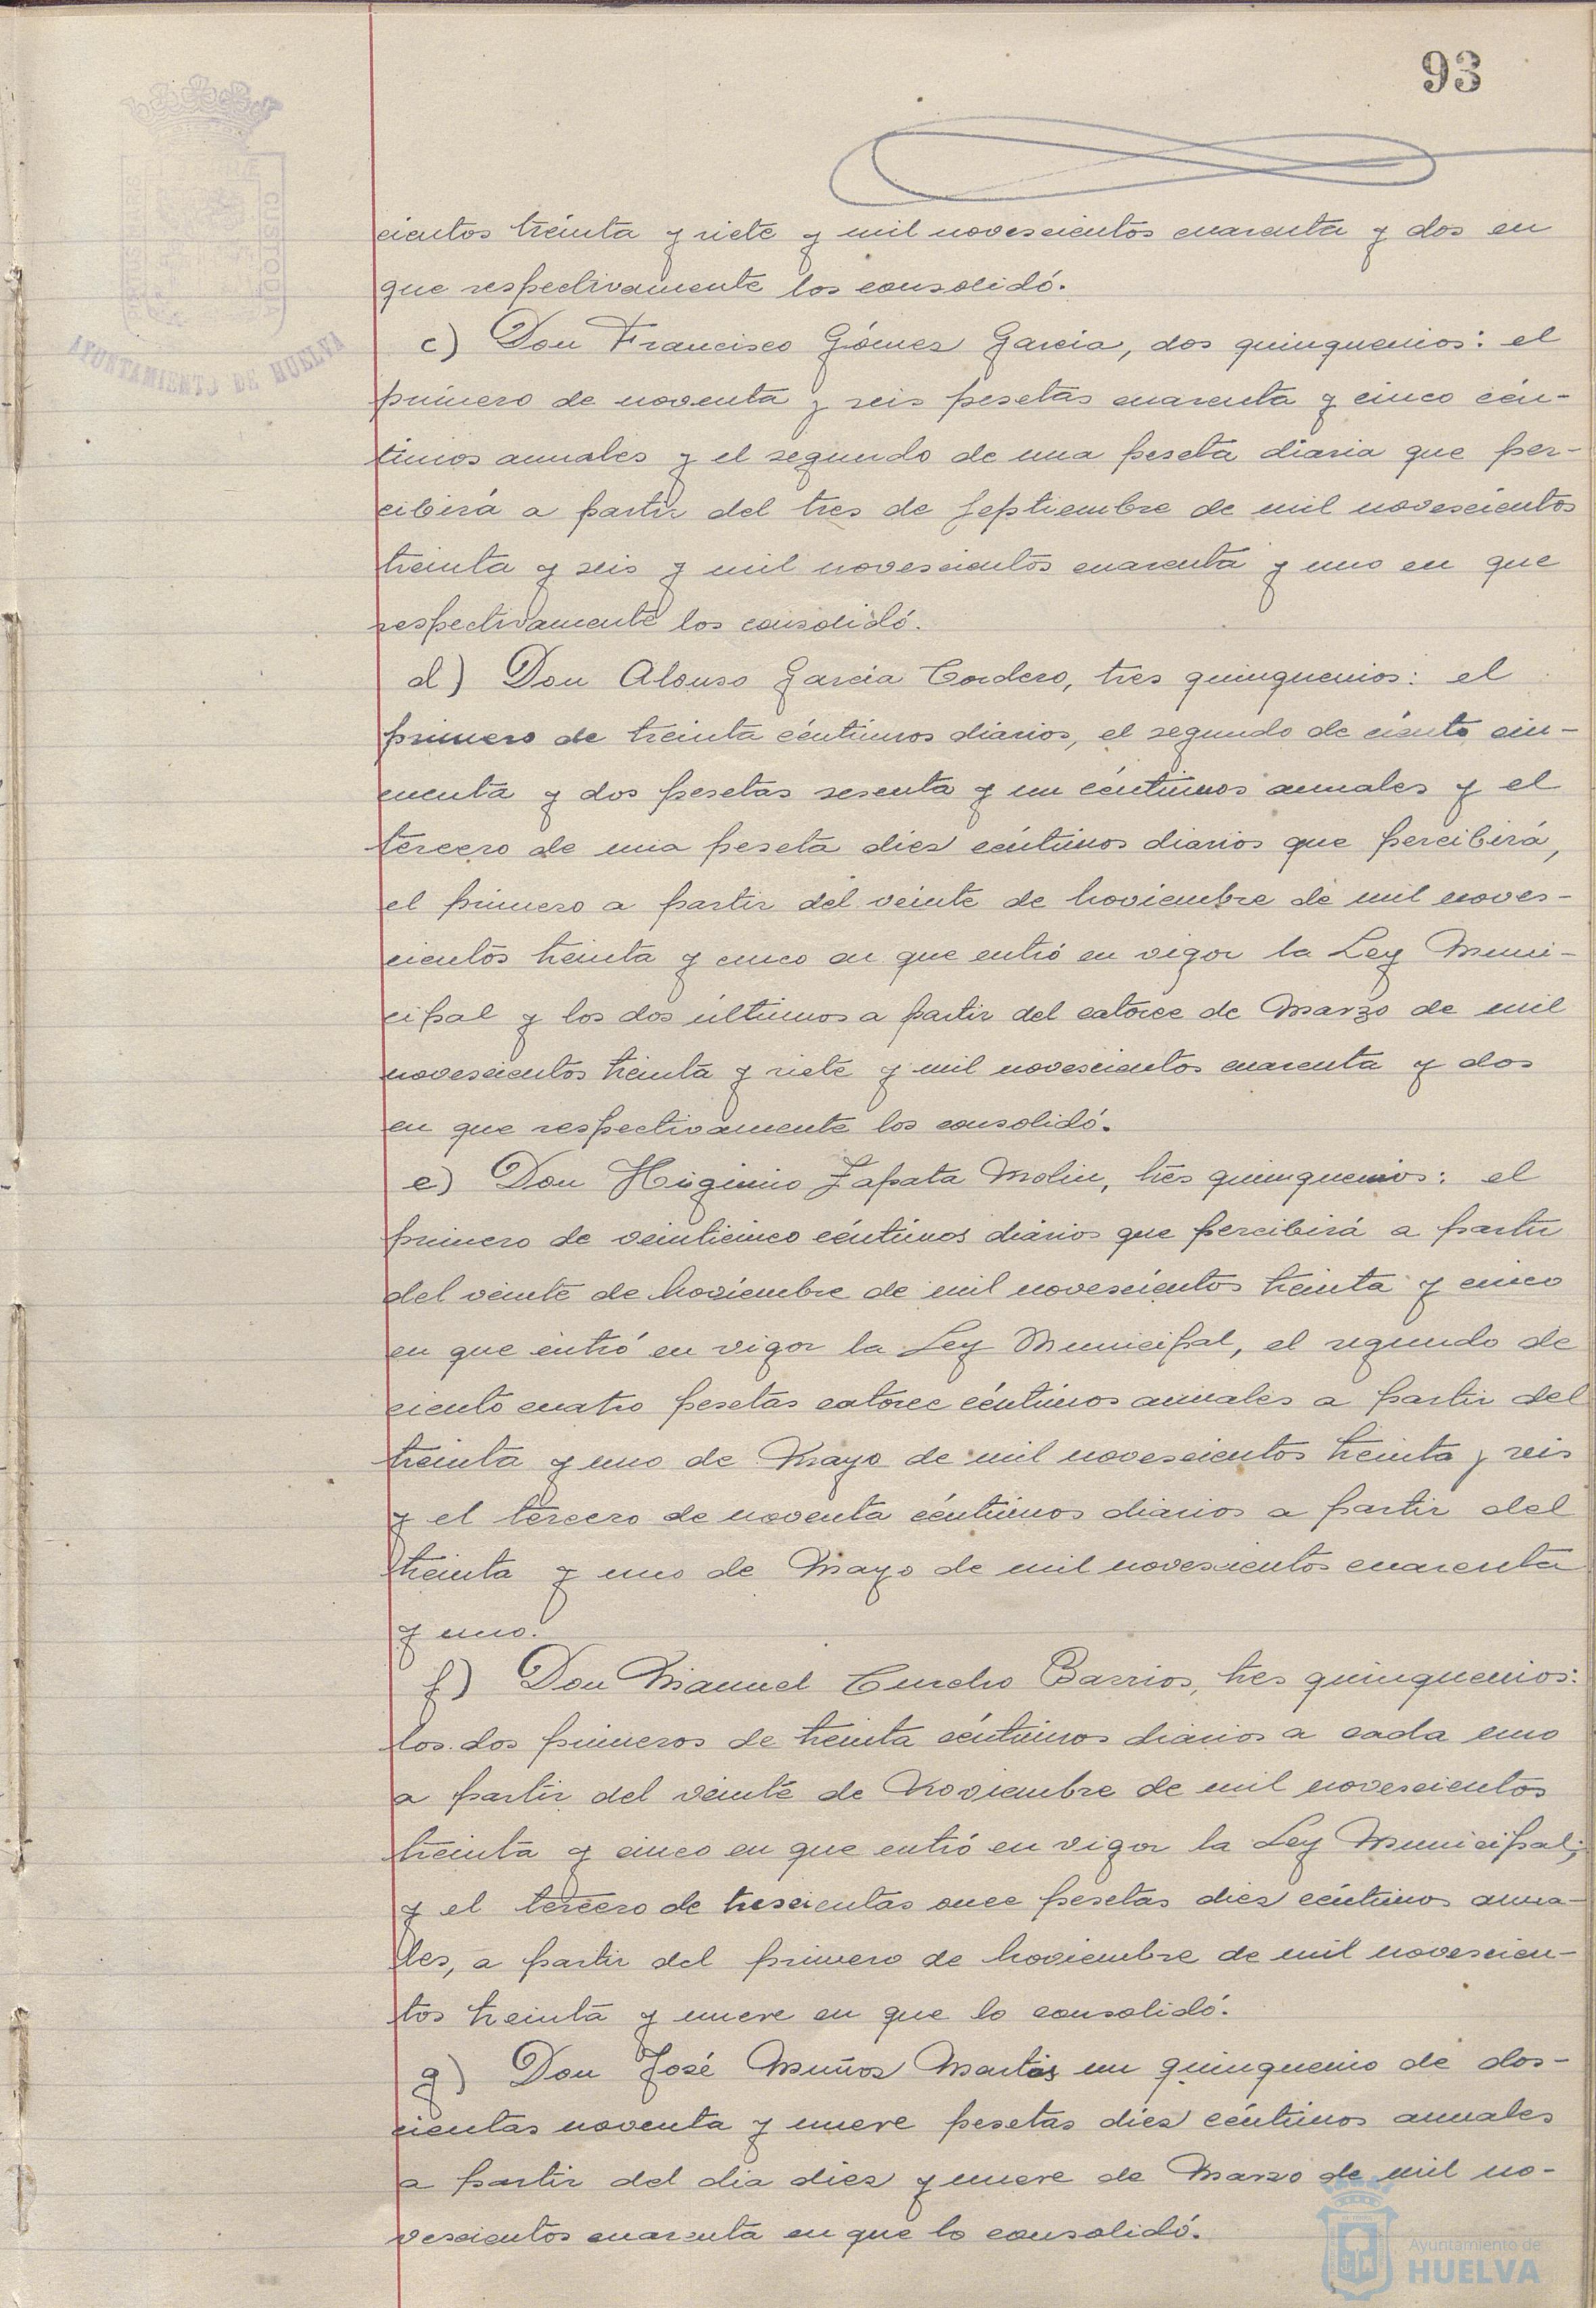 93
cientos treinta y siete y mil novescientos cuarenta y dos en
que respectivamente los consolidó.
c) Don Francisco Gómez Garcia, dos quinquenios: el
primero de noventa y seis pesetas cuarenta y cinco cén-
timos anuales y el segundo de una peseta diaria que per-
cibirá a partir del tres de Septiembre de mil novescientos
treinta y seis y mil novescientos cuarenta y uno en que
respectivamente los consolidó.
d) Don Alonso Garcia Cordero, tres quinquenios: el
primero de treinta céntimos diarios, el segundo de ciento cin-
cuenta y dos pesetas sesenta y un céntimos anuales y el
tercero de una peseta diez céntimos diarios que percibirá,
el primero a partir del veinte de Noviembre de mil noves-
cientos treinta y cinco en que entró en vigor la Ley Muni-
cipal y los dos últimos a partir del catorce de Marzo de mil
novescientos treinta y siete y mil novescientos cuarenta y dos
en que respectivamente los consolidó.
e) Don Higinio Zapata Molin, tres quinquenios: el
primero de veinticinco céntimos diarios que percibirá a partir
del veinte de Noviembre de mil novescientos treinta y cinco
en que entró en vigor la Ley Municipal, el segundo de
ciento cuatro pesetas catorce céntimos anuales a partir del
treinta y uno de Mayo de mil novescientos treinta y seis
y el tercero de noventa céntimos diarios a partir del
treinta y uno de Mayo de mil novescientos cuarenta
y uno.
f) Don Manuel Barrios, tres quinquenios:
los dos primeros de treinta céntimos diarios a cada uno
a partir del veinte de Noviembre de mil novescientos
treinta y cinco en que entró en vigor la Ley Municipal;
y el tercero de trescientas once pesetas diez céntimos anua-
les, a partir del primero de Noviembre de mil novescien-
tos treinta y nueve en que lo consolidó.
g) Don José Muñoz Martis un quinquenio de dos-
cientas noventa y nueve pesetas diez céntimos anuales
a partir del dia diez y nueve de Marzo de mil no-
vescientos cuarenta en que lo consolidó.
AYUNTAMIENTO DE HUELVA
Ayuntamiento de
HUELVA